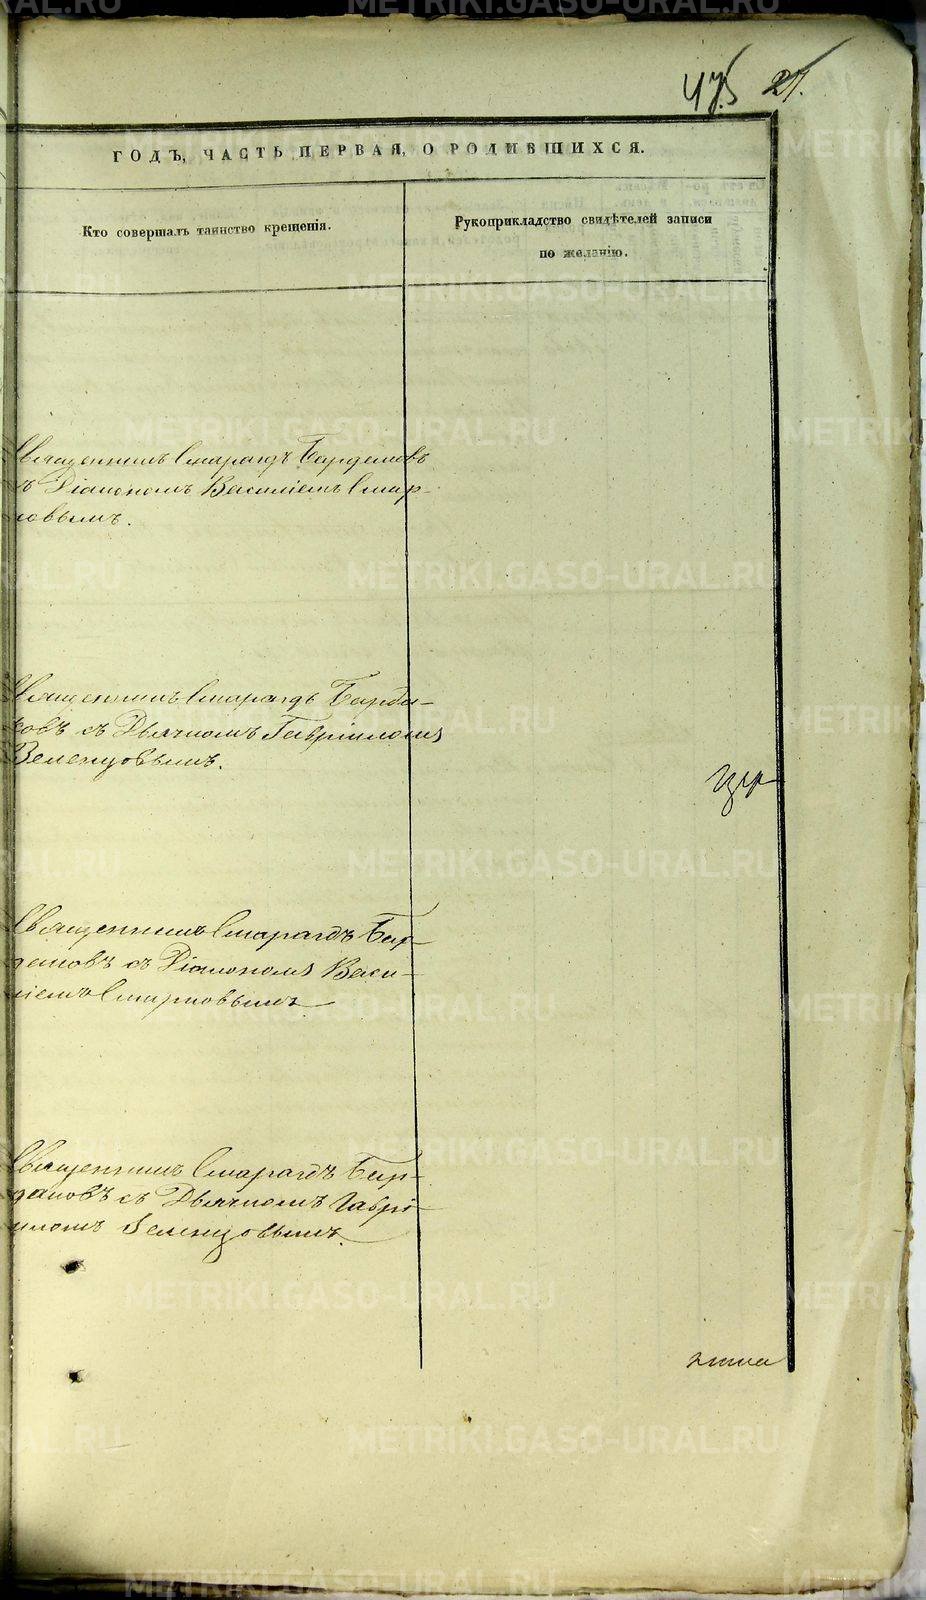 475 21.
ГОДЪ, ЧАСТЬ ПЕРВАЯ, О РОДИВШИХСЯ.
Кто совершалъ таинство крещенія.
Рукоприкладство свидѣтелей записи
по желанію.
Священникъ Смарагдъ
съ Діакономъ Василіемъ Смир-
новымъ.
Священникъ Смарагдъ
ковъ съ Дьячкомъ Гавріиломъ
Зеленцовымъ.
Священникъ Смарагдъ Бар-
даковъ съ Діакономъ Васи-
ліемъ Смирновымъ
Священникъ Смарагдъ Бар-
даковъ съ Дьячкомъ Гаврі-
иломъ Зеленцовымъ.
METRIKI.GASO-URAL.RU